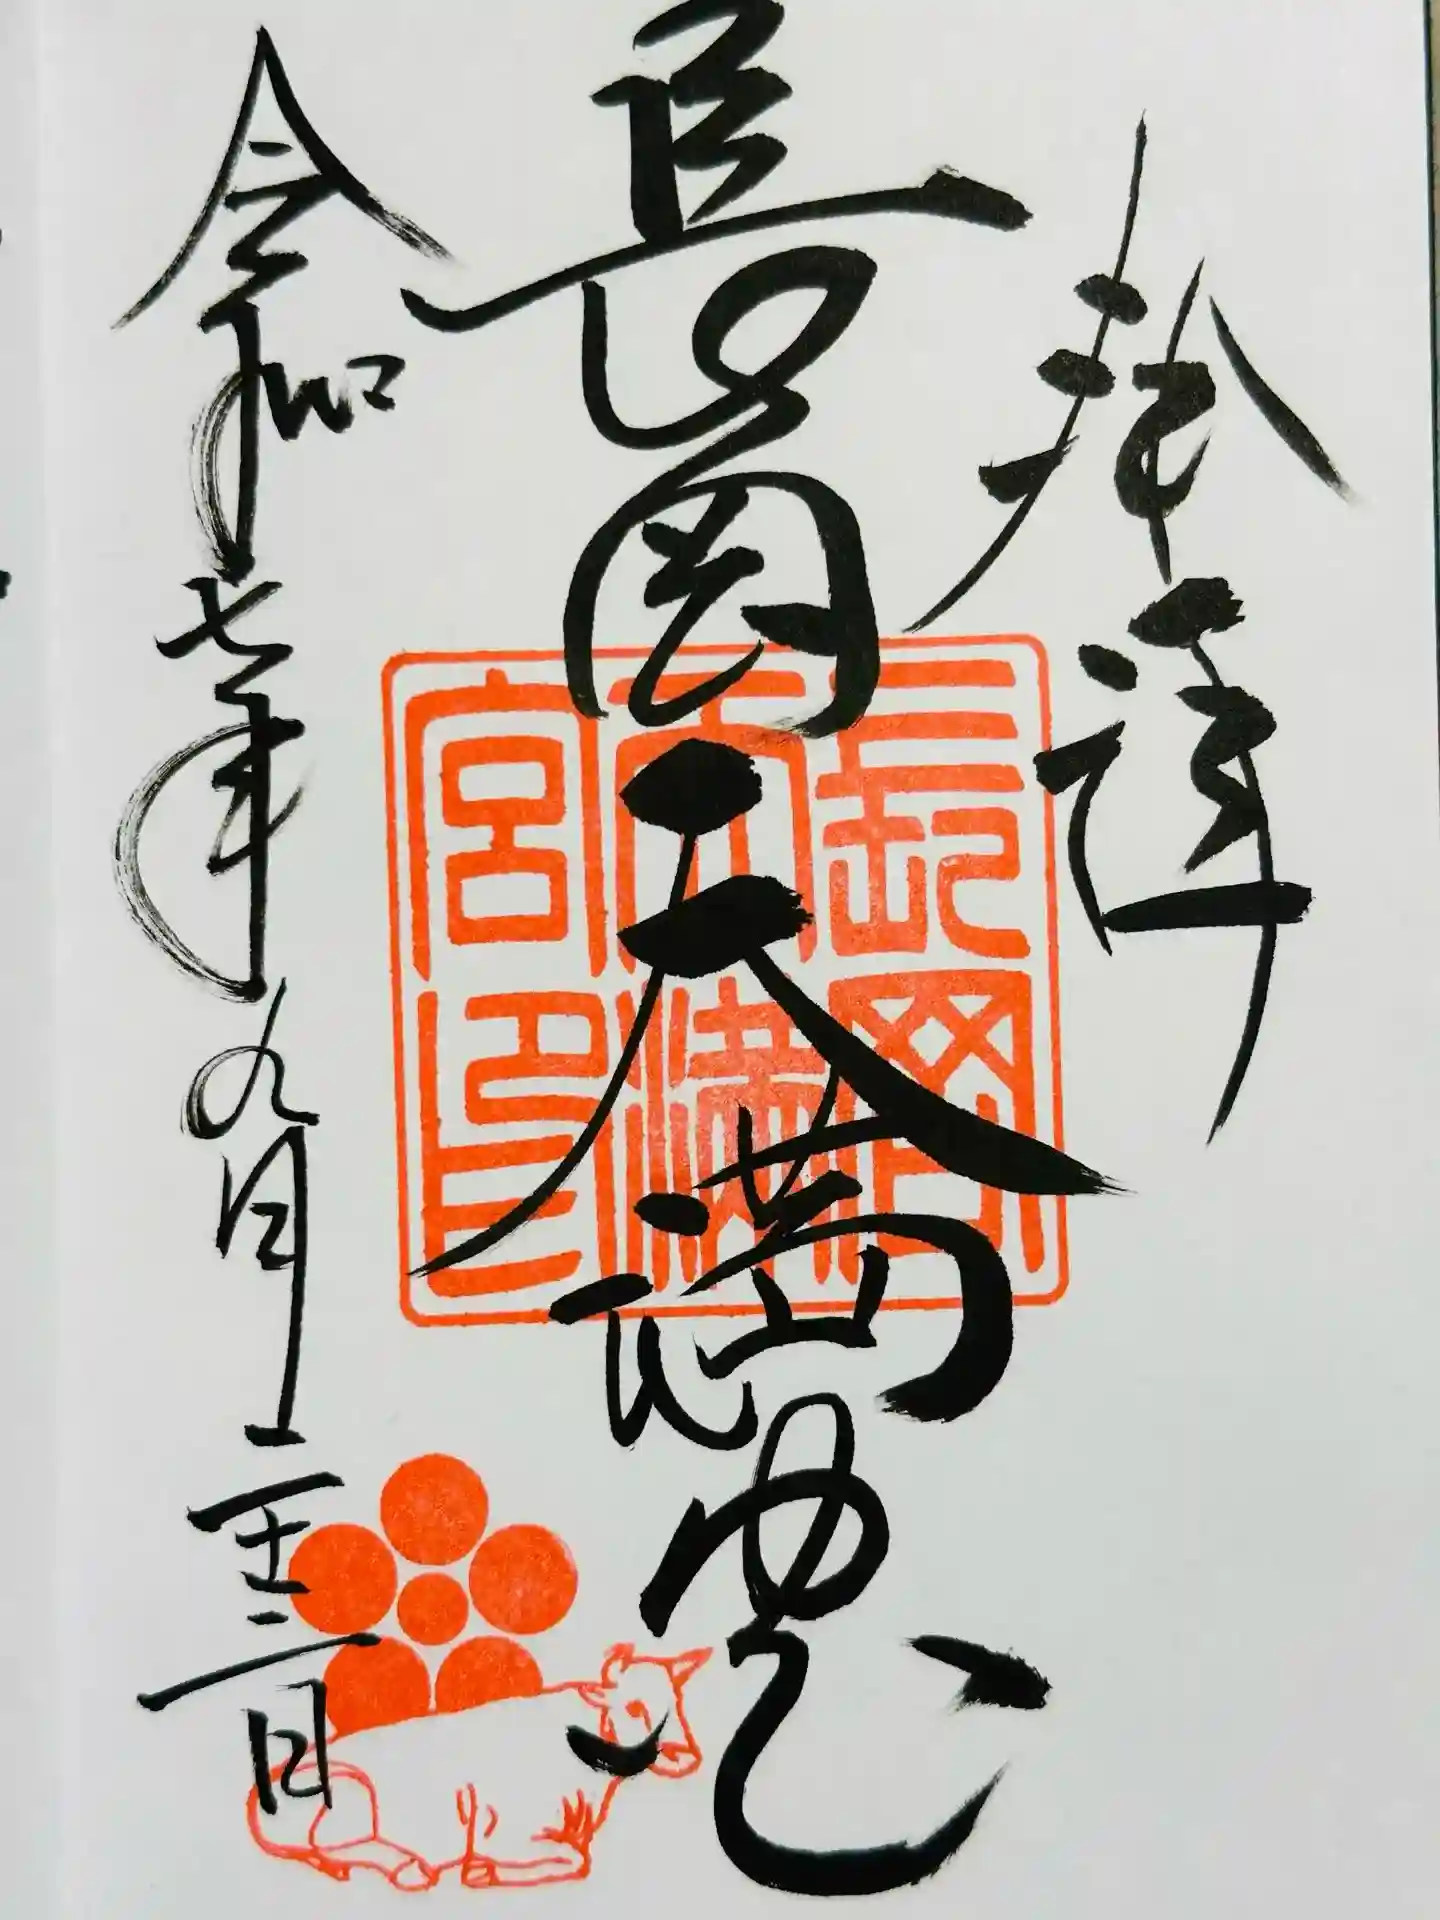 長岡天満宮
令和七年九月二十三日
長岡
天満
宮印